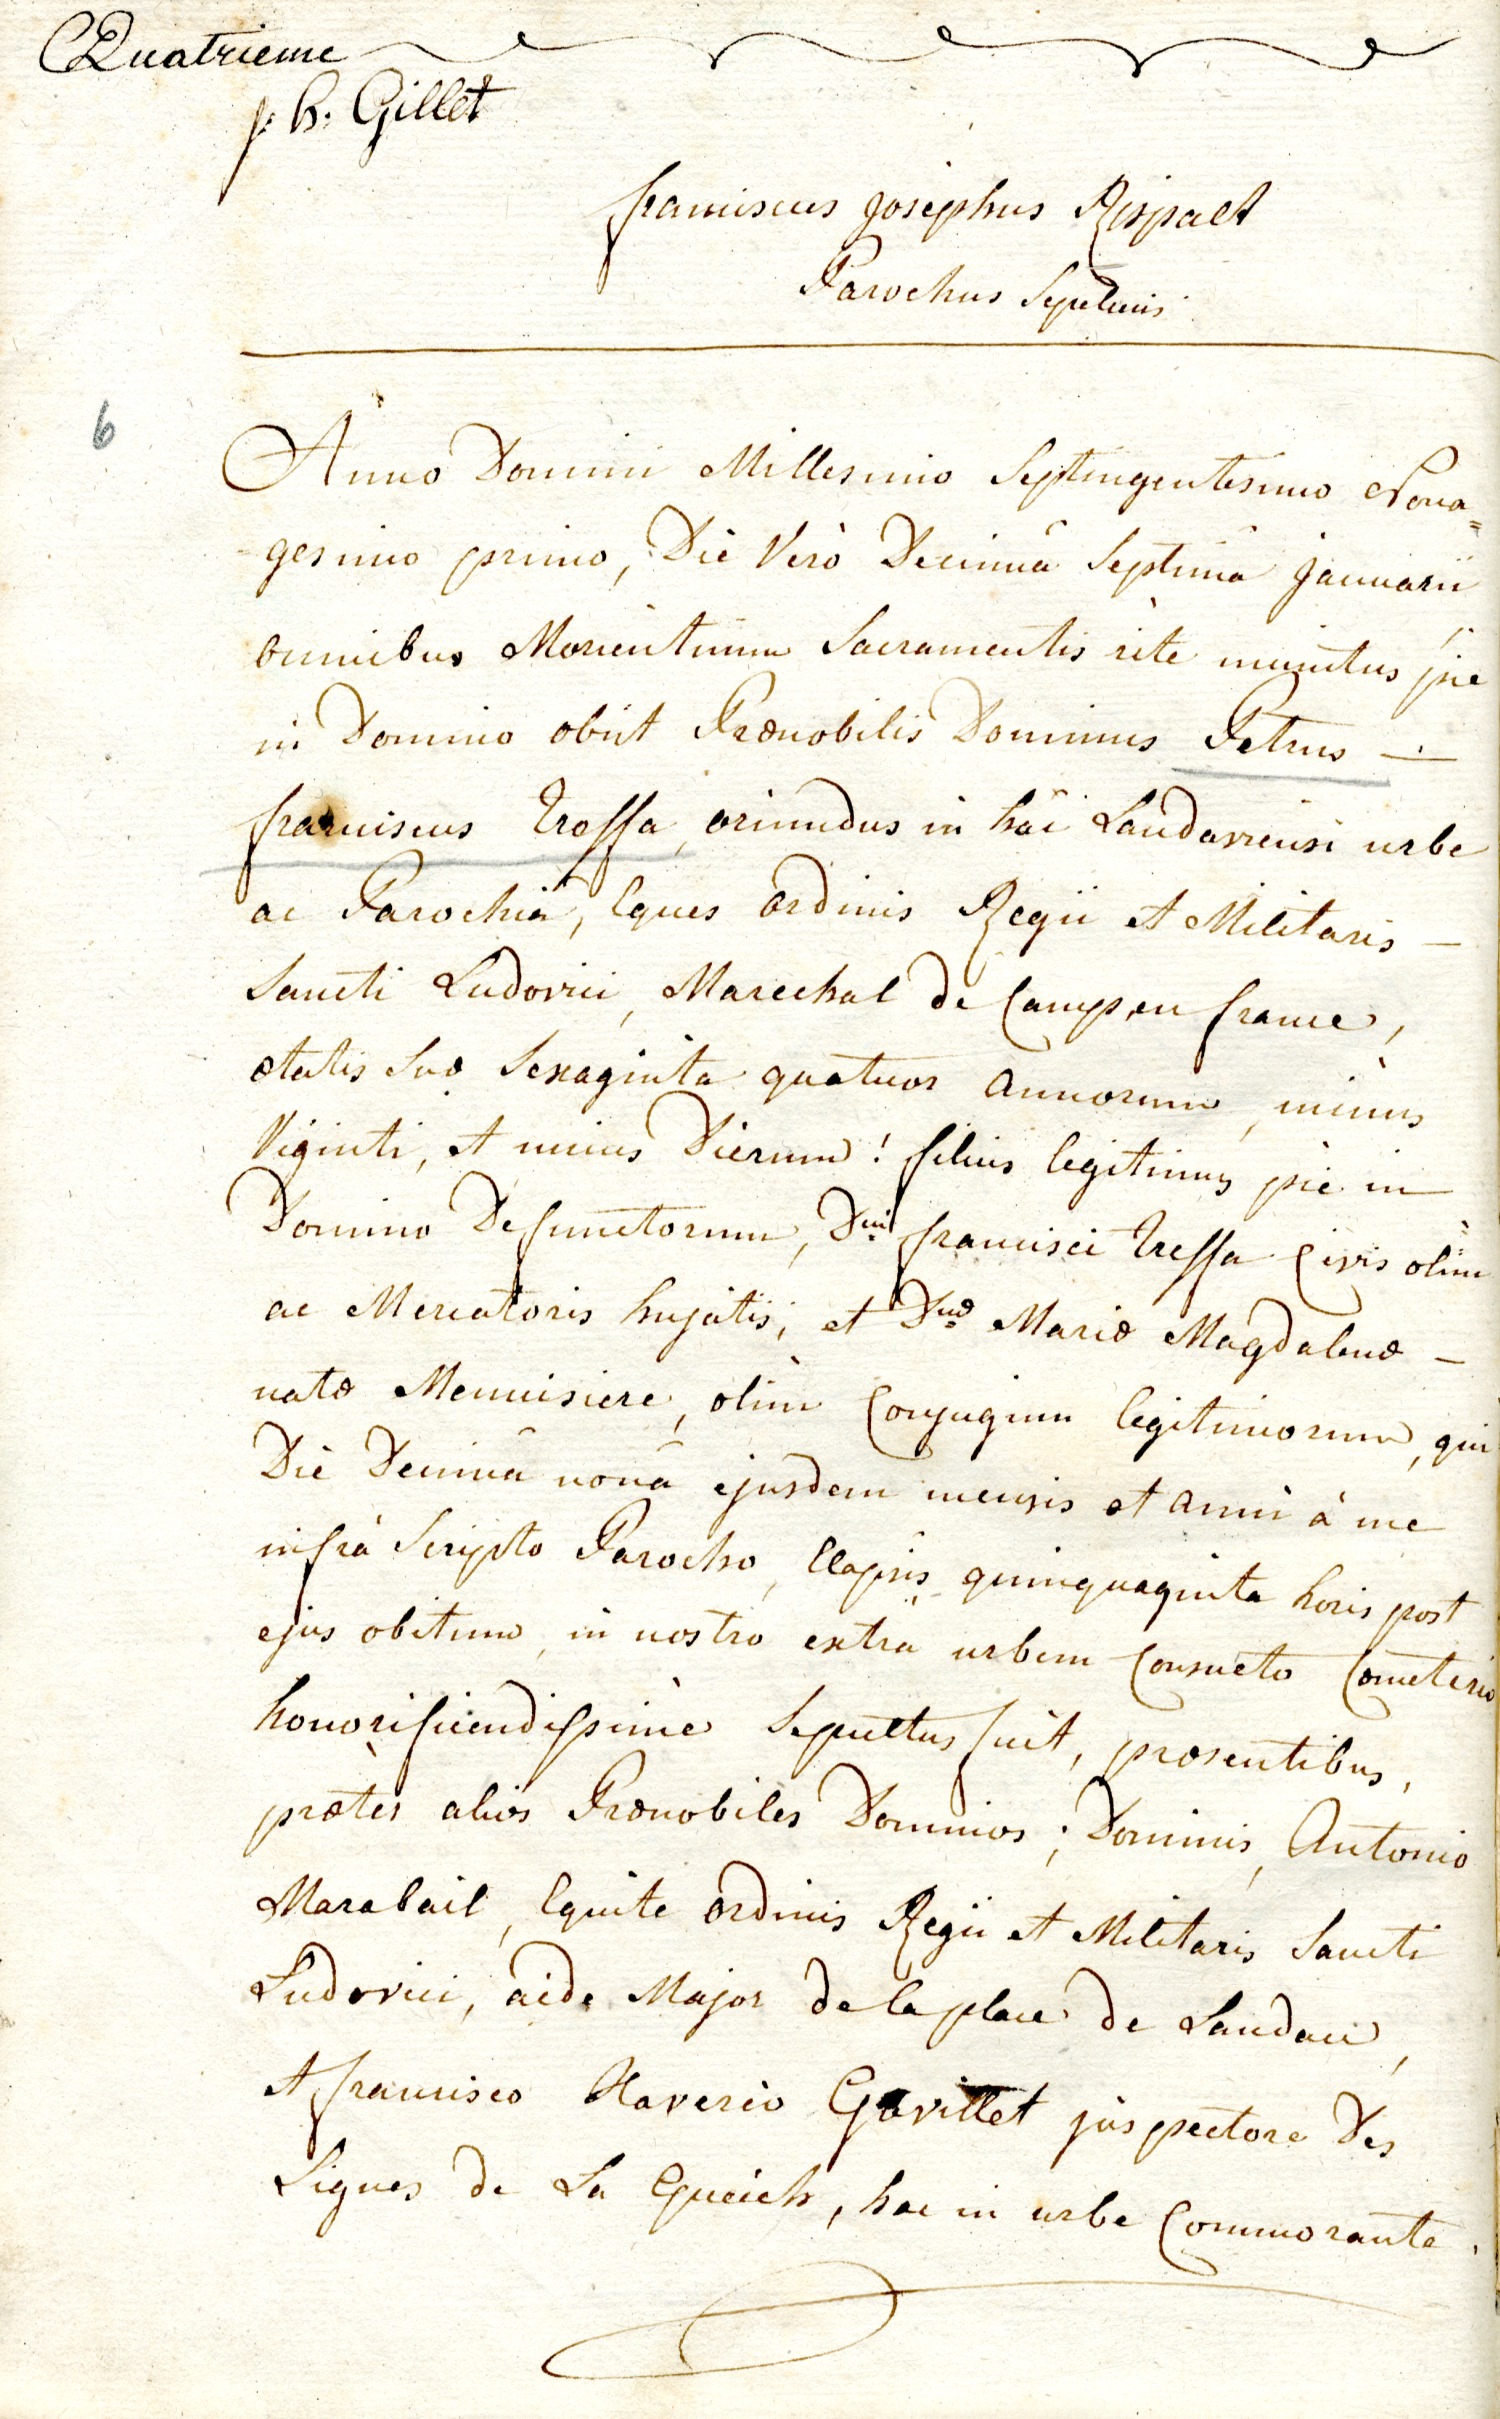 Quatrieme
p. h. Gillet
franciscus Josephus Rispalt
Parochus Sepelivi
6
Anno Domini Millesimo Septingentesimo Nona=
gesimo primo, Die Vero Decimâ Septimâ Januarii
omnibus Morientium Sacramentis rite munitus pie
in Domino obiit Prænobilis Dominus Petrus —
franciscus Treffa, oriundus in hâc Landaviensi urbe
ac Parochiâ, Eques Ordinis Regii et Militaris —
Sancti Ludovici, Marechal de Camp, en france,
ætatis Suæ Sexaginta quatuor annorum, minus
Viginti, et unius Dierum! filius legitimus pie in
Domino Defunctorum, Dni francisci Treffa Civis olim
ac Mercatoris hujatis, et Dnæ Mariæ Magdalenæ —
natæ Menuisiere, olim Conjugum legitimorum, qui
Die Decimâ nonâ ejusdem mensis et anni à me
infrà Scripto Parocho, Elapsis quinquaginta horis post
ejus obitum, in nostro extra urbem Consueto Cometerio
honorificendissimè Sepultus fuit, præsentibus,
præter alios Prænobiles Dominos; Dominis, Antonio
Marabail, Equite Ordinis Regii et Militaris Sancti
Ludovici, aide Major de la place de Landau,
et francisco Xaverio Gavillet inspectore Des
Lignes de La Queich, hac in urbe Commorante.